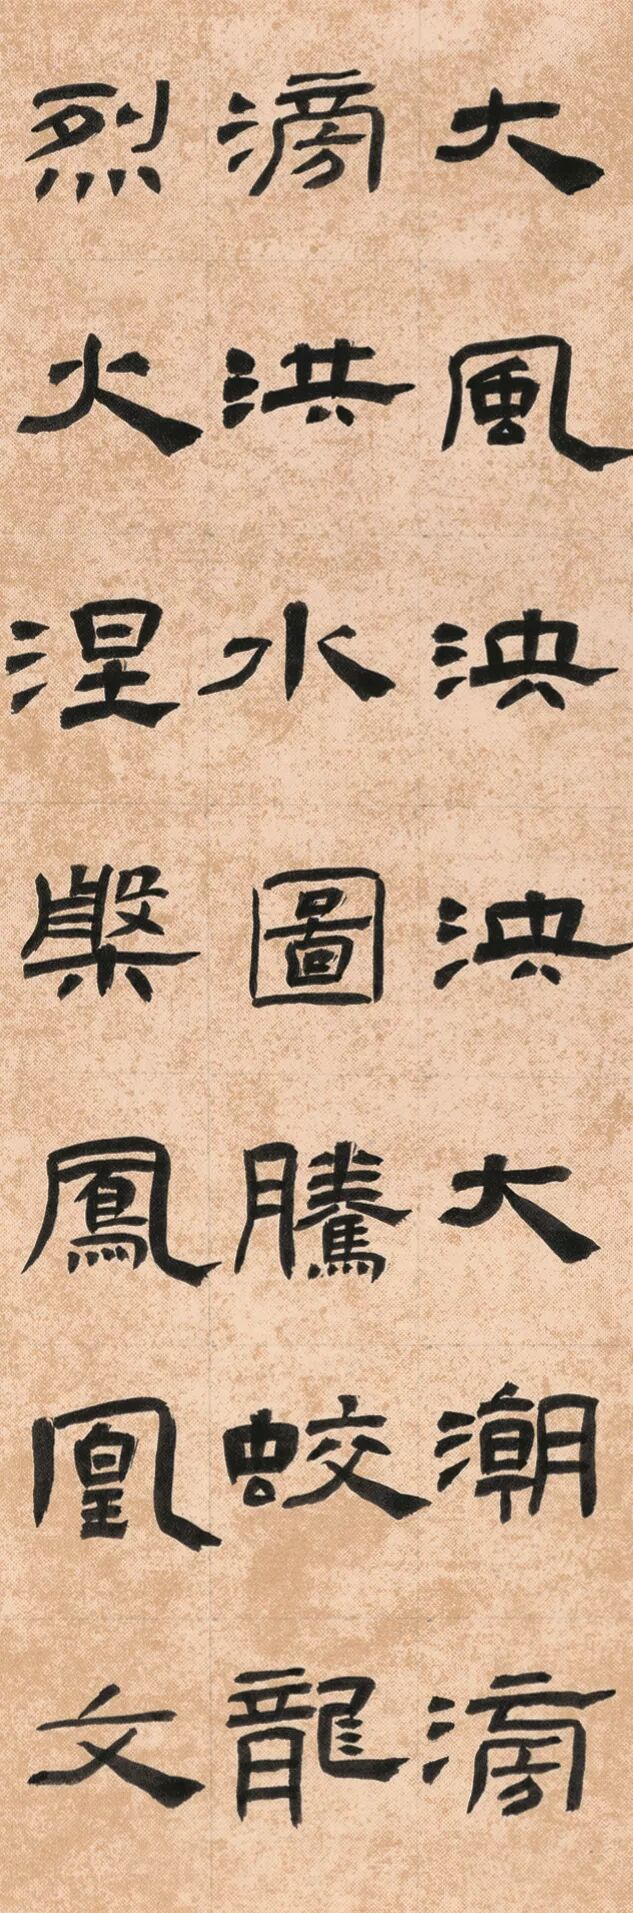 大風泱泱大潮滂
滂洪水圖騰蛟龍
烈火涅槃鳳凰文